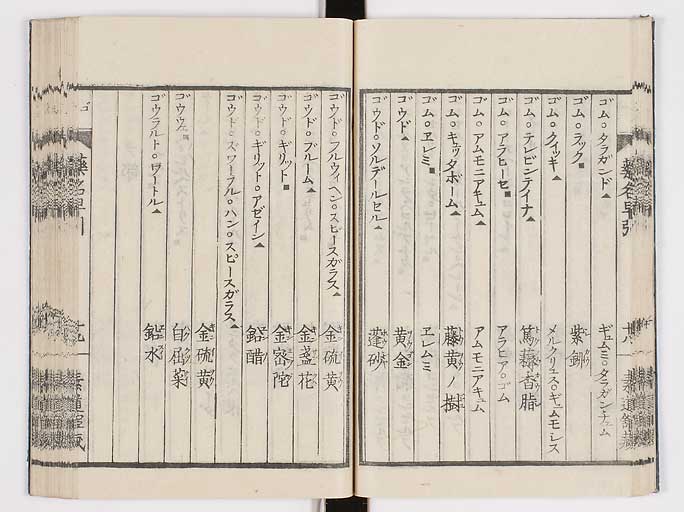 ゴム。タラガンド▲ ギュムミ。タラガンチュム
ゴム。ラック■ 紫鉚
ゴム。クイッキ▲ メルクリュス。ギュムモレス
ゴム。テレビンテイナ▲ 篤耨香脂
ゴム。アラヒーセ■ アラビア。ゴム
ゴム。アムモニアキュム▲ アムモニアキュム
ゴム。ギュッタボーム▲ 藤黄ノ樹
ゴム。エレミ■ エレムミ
ゴウド▲ 黄金
ゴウド。ソルデールセル▲ 蓬砂
ゴウド。フルウィヘン。スピースガラス▲ 金硫黄
ゴウド。ブルーム▲ 金盞花
ゴウド。ギリット■ 金密陀
ゴウド。ギリット。アゼイン▲ 鉛醋
ゴウド。ズワーフル。ハン。スピースガラス▲ 金硫黄
ゴウウェ■
ゴウラルト。ワートル▲ 鉛水